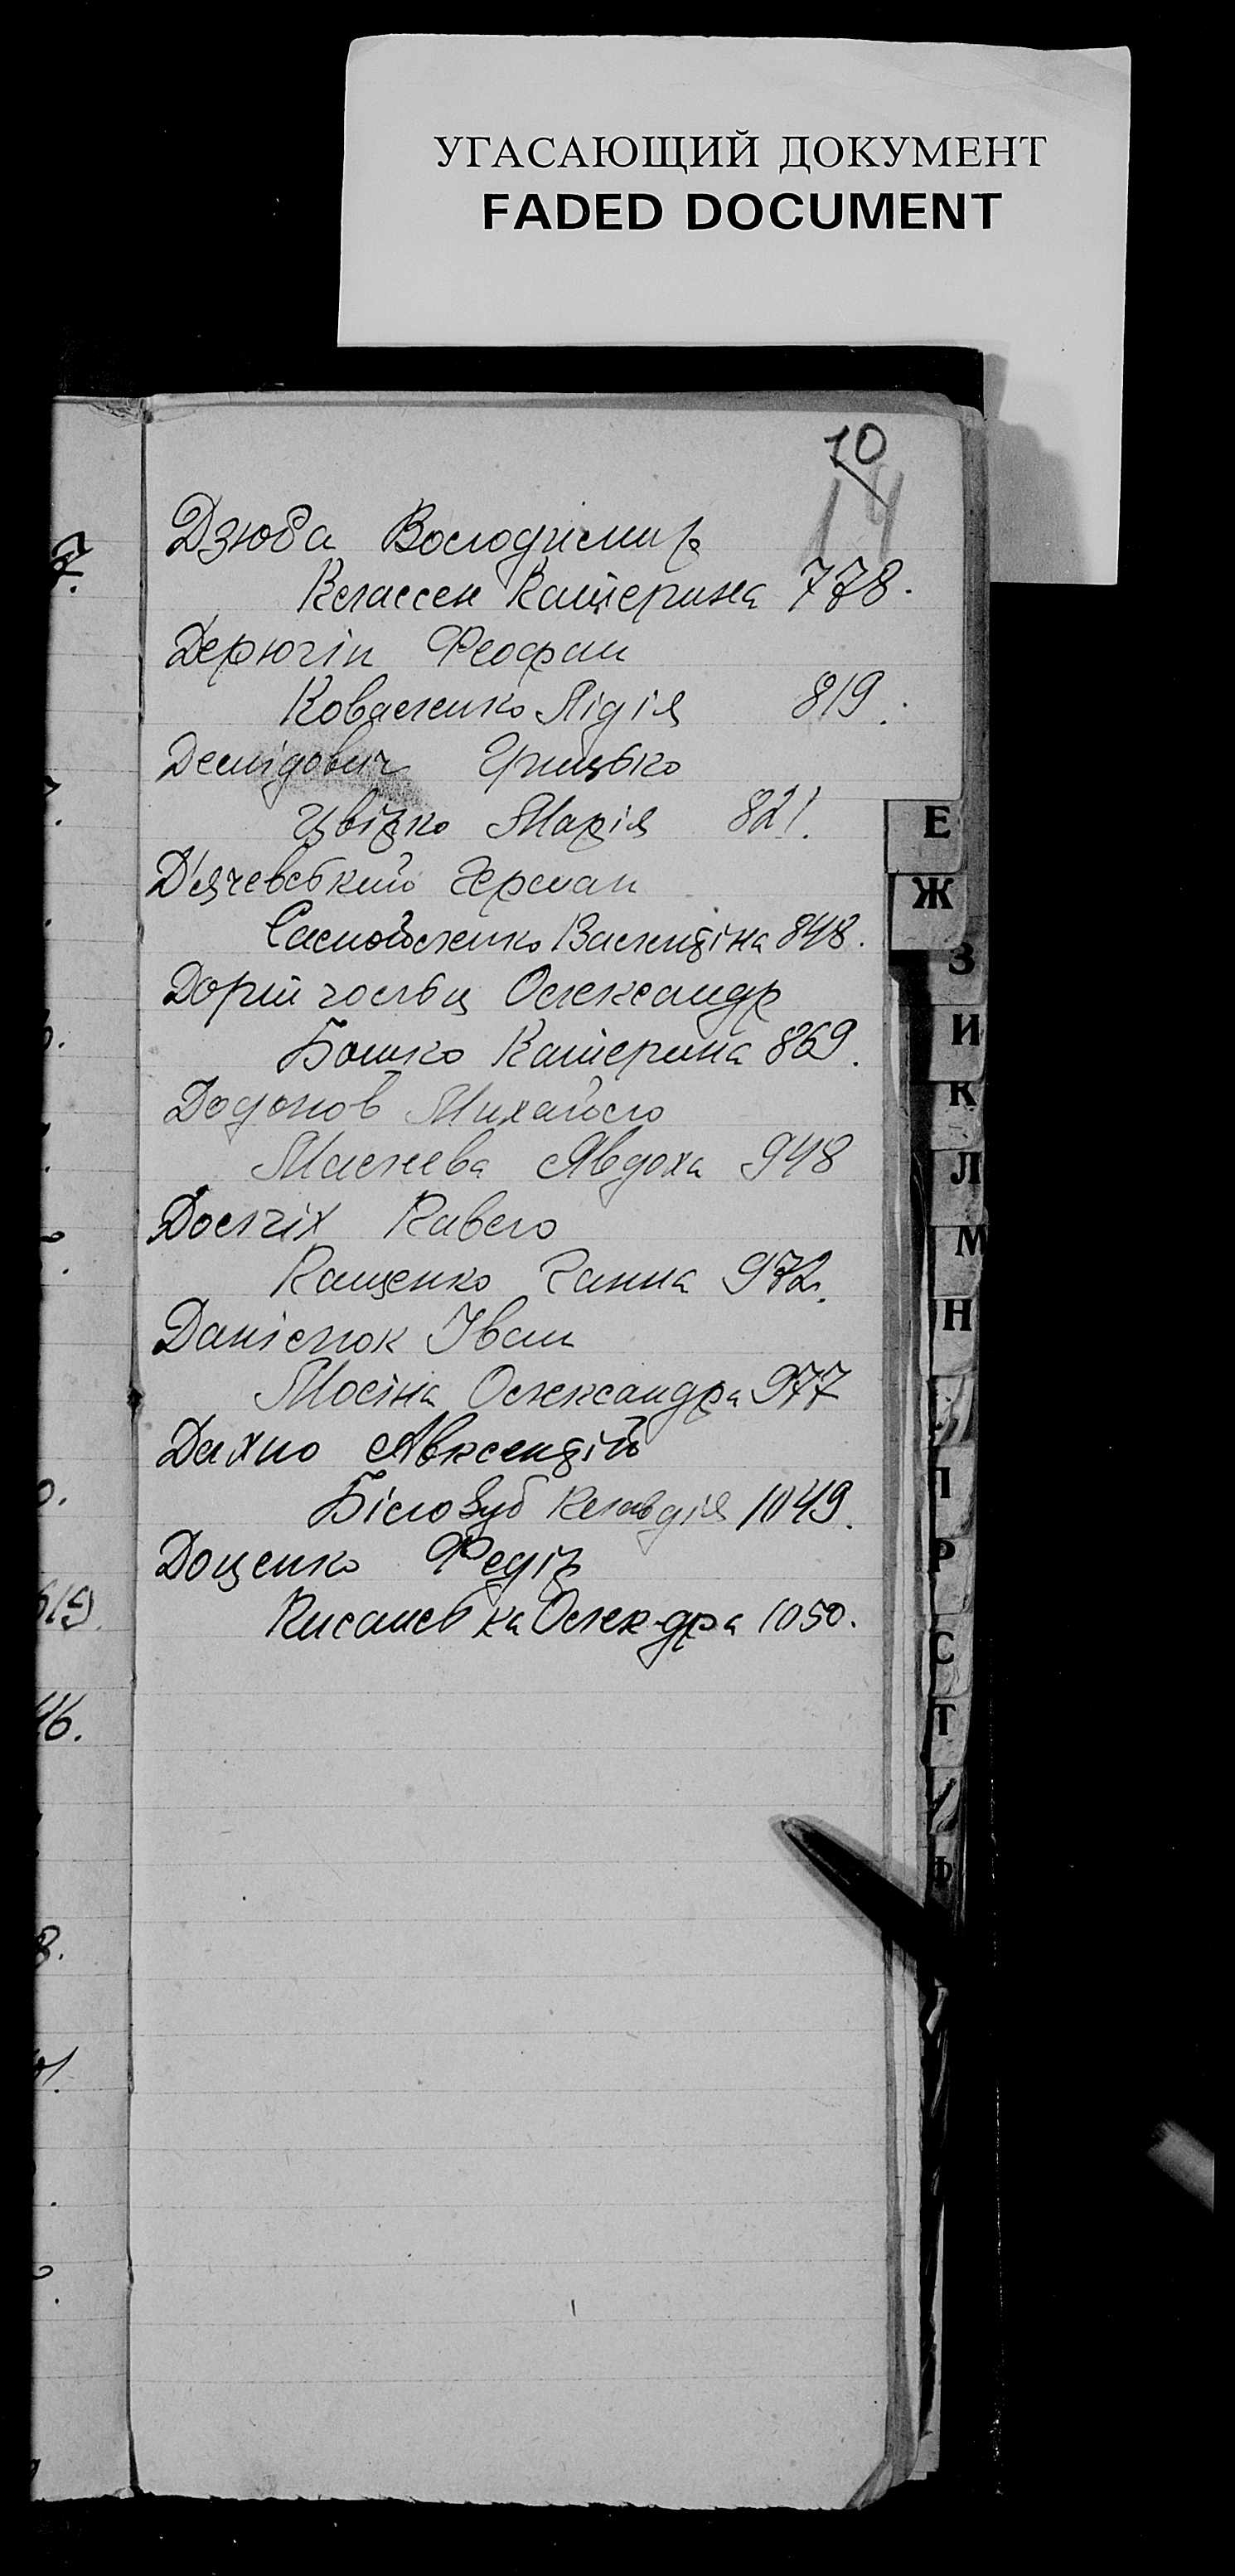 УГАСАЮЩИЙ ДОКУМЕНТ
FADED DOCUMENT
10
14
Дзюба Володимир
Классен Катерина 778.
Дерюгін Феофан
Коваленко Лідія 819.
Демідович Грицько
Цвірко Марія 821.
Д'ячевський Герман
Самойленко Валентіна 848.
Олександр
Бошко Катерина 869.
Додонов Михайло
Авдоха 948
Долгіх Павло
Кащенко Ганна 972.
Данілюк Іван
Мосіна Олександра 977
Дахно Авксентій
Білозуб Клавдія 1049.
Доценко Федір
Олек-дра 1050.
7.
619.
46.
8.
Е
Ж
З
И
К
Л
М
Н
П
Р
С
Т
Ф